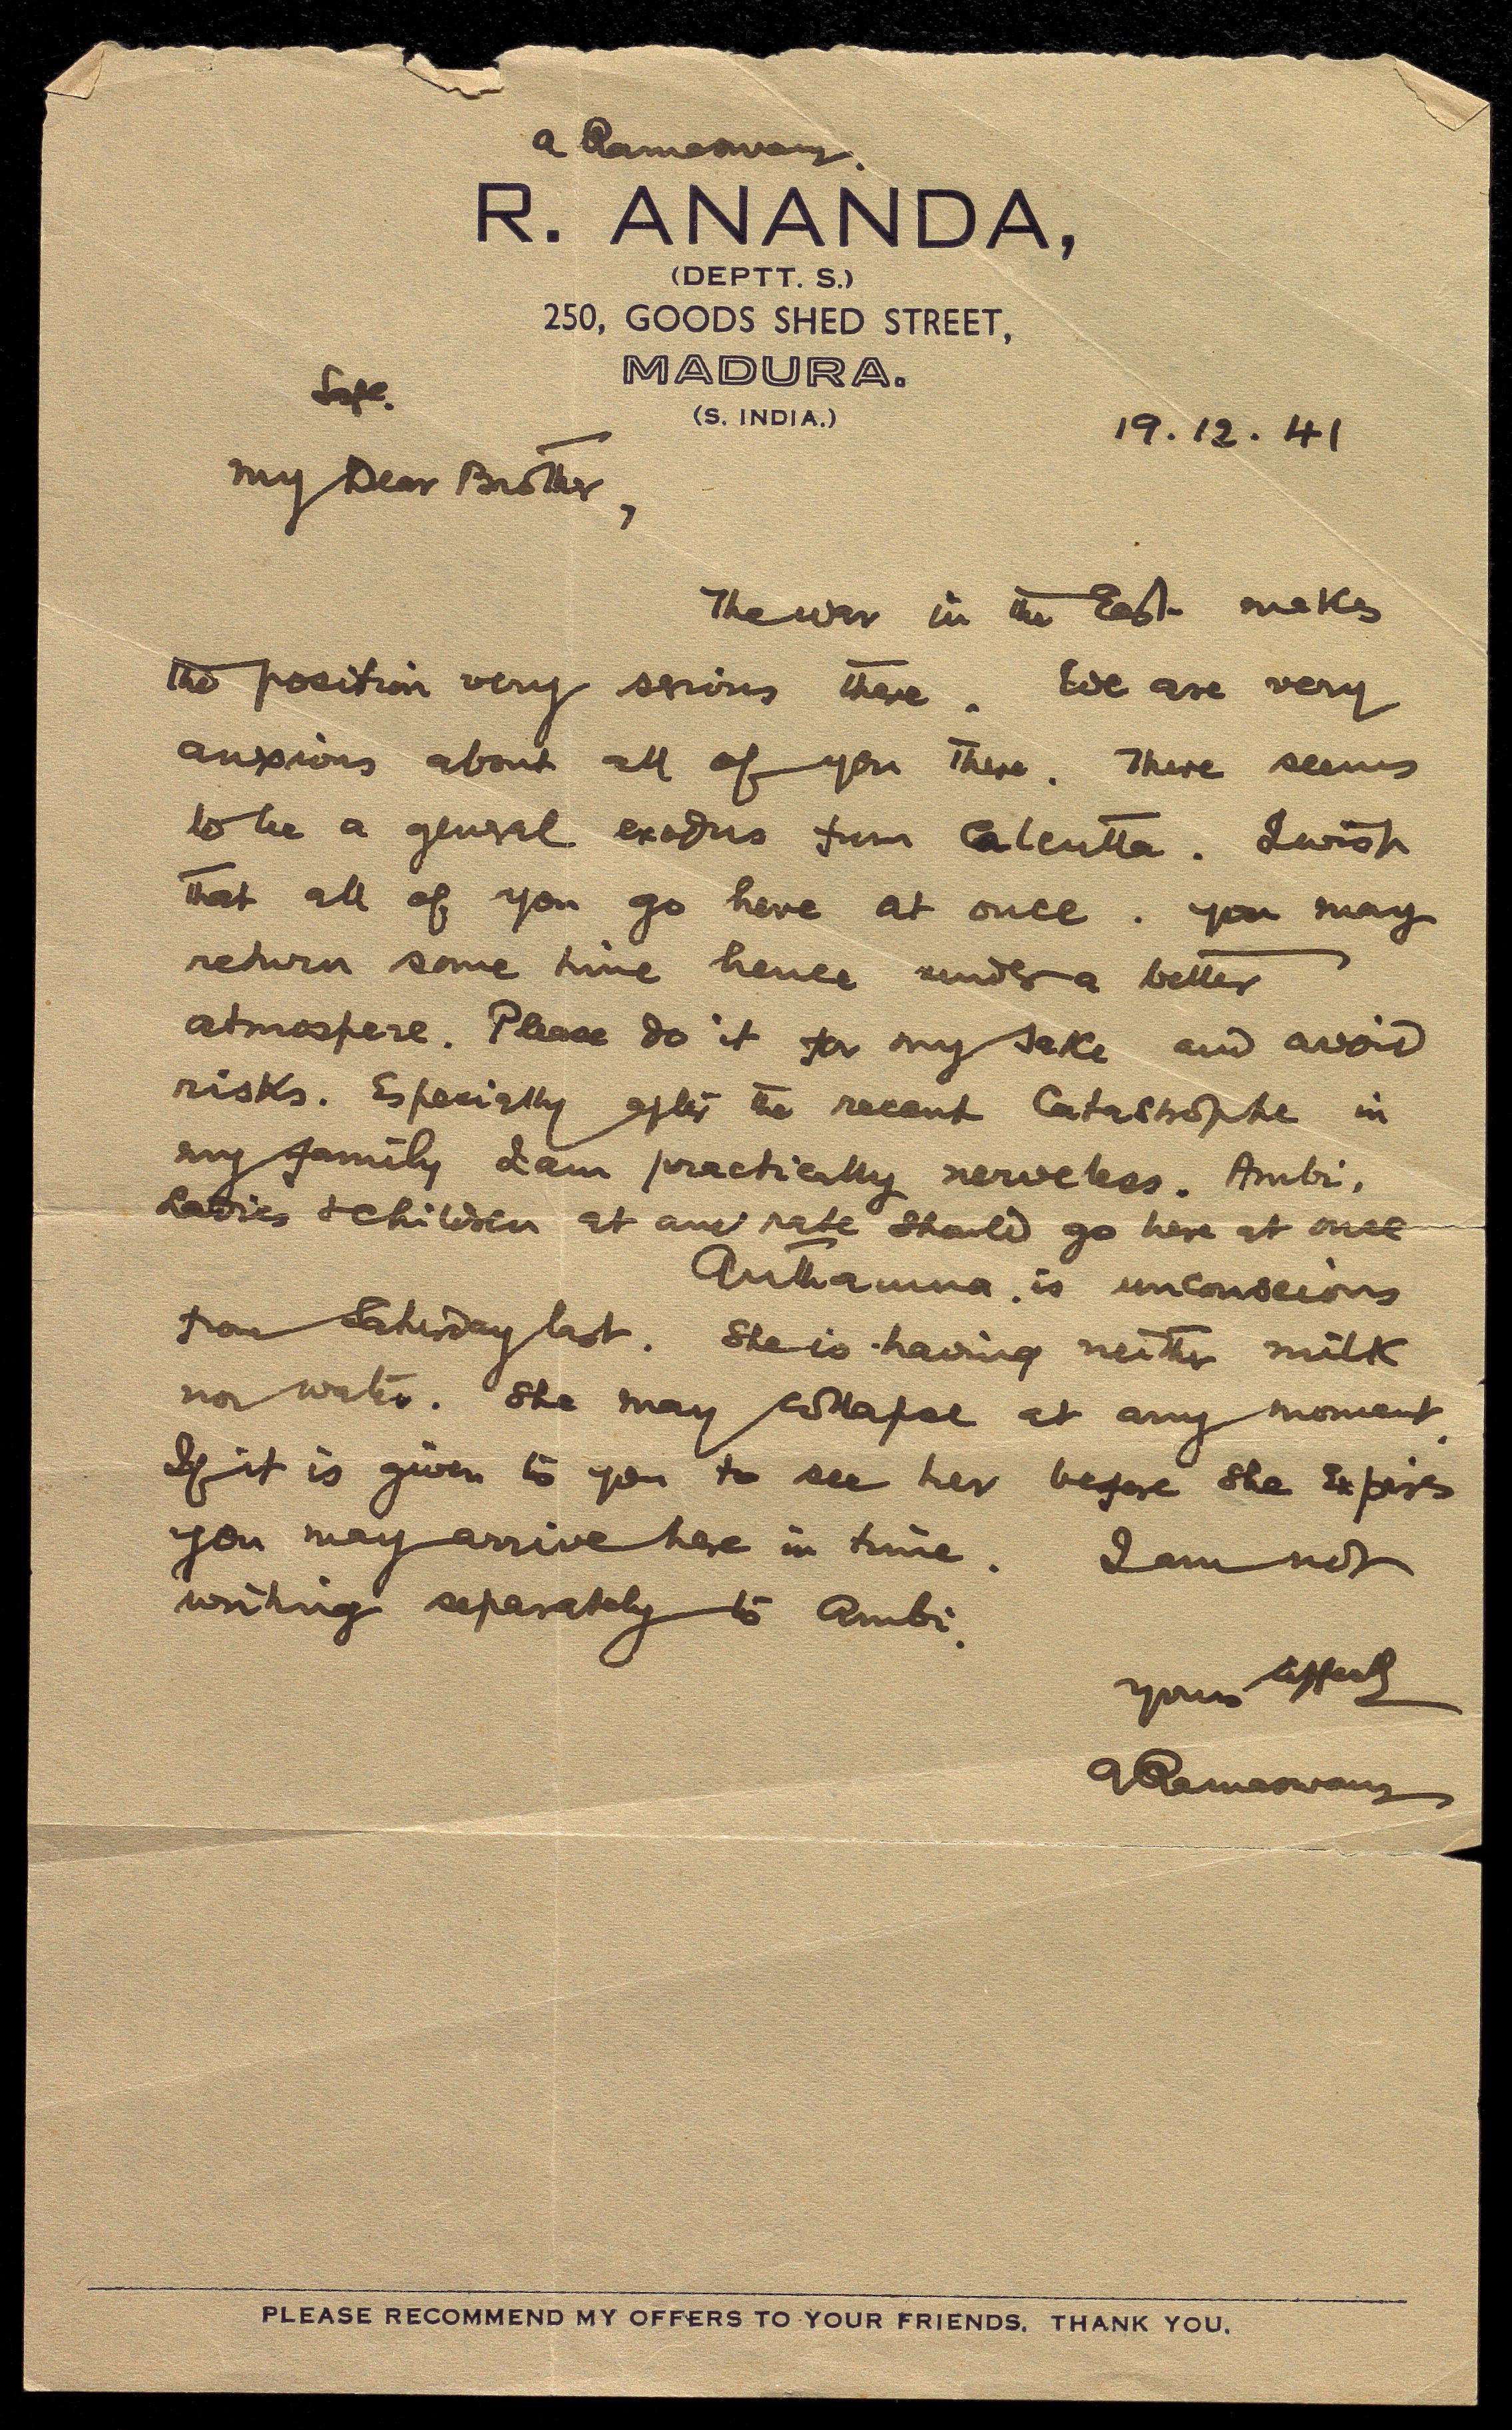 a Rameswamy.
R. ANANDA,
(DEPTT. S.)
250, GOODS SHED STREET,
MADURA.
(S. INDIA.)
Safe.
19.12.41
My Dear Brother,
The war in the East makes
the position very serious there. We are very
anxious about all of you there. There seems
to be a general exodus from Calcutta. I wish
that all of you go here at once. you may
return some time hence under a better
atmospere. Please do it for my sake and avoid
risks. Especially after the recent Catastrophe in
my family I am practically nerveless. Ambi,
Ladies & children at any rate should go here at once
is unconscious
from Saturday last. She is having neither milk
nor water. She may collapse at any moment.
If it is given to you to see her before she Expires
you may arrive here in time. I am not
writing separately to Ambi.
yours affectly
a Rameswamy
PLEASE RECOMMEND MY OFFERS TO YOUR FRIENDS. THANK YOU.